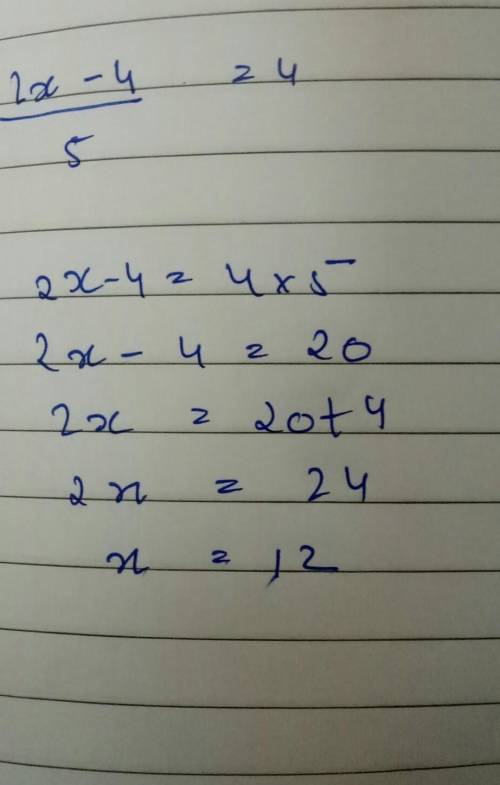 2x - 4 = 4
5
2x - 4 = 4 x 5
2x - 4 = 20
2x = 20 + 4
2x = 24
x = 12